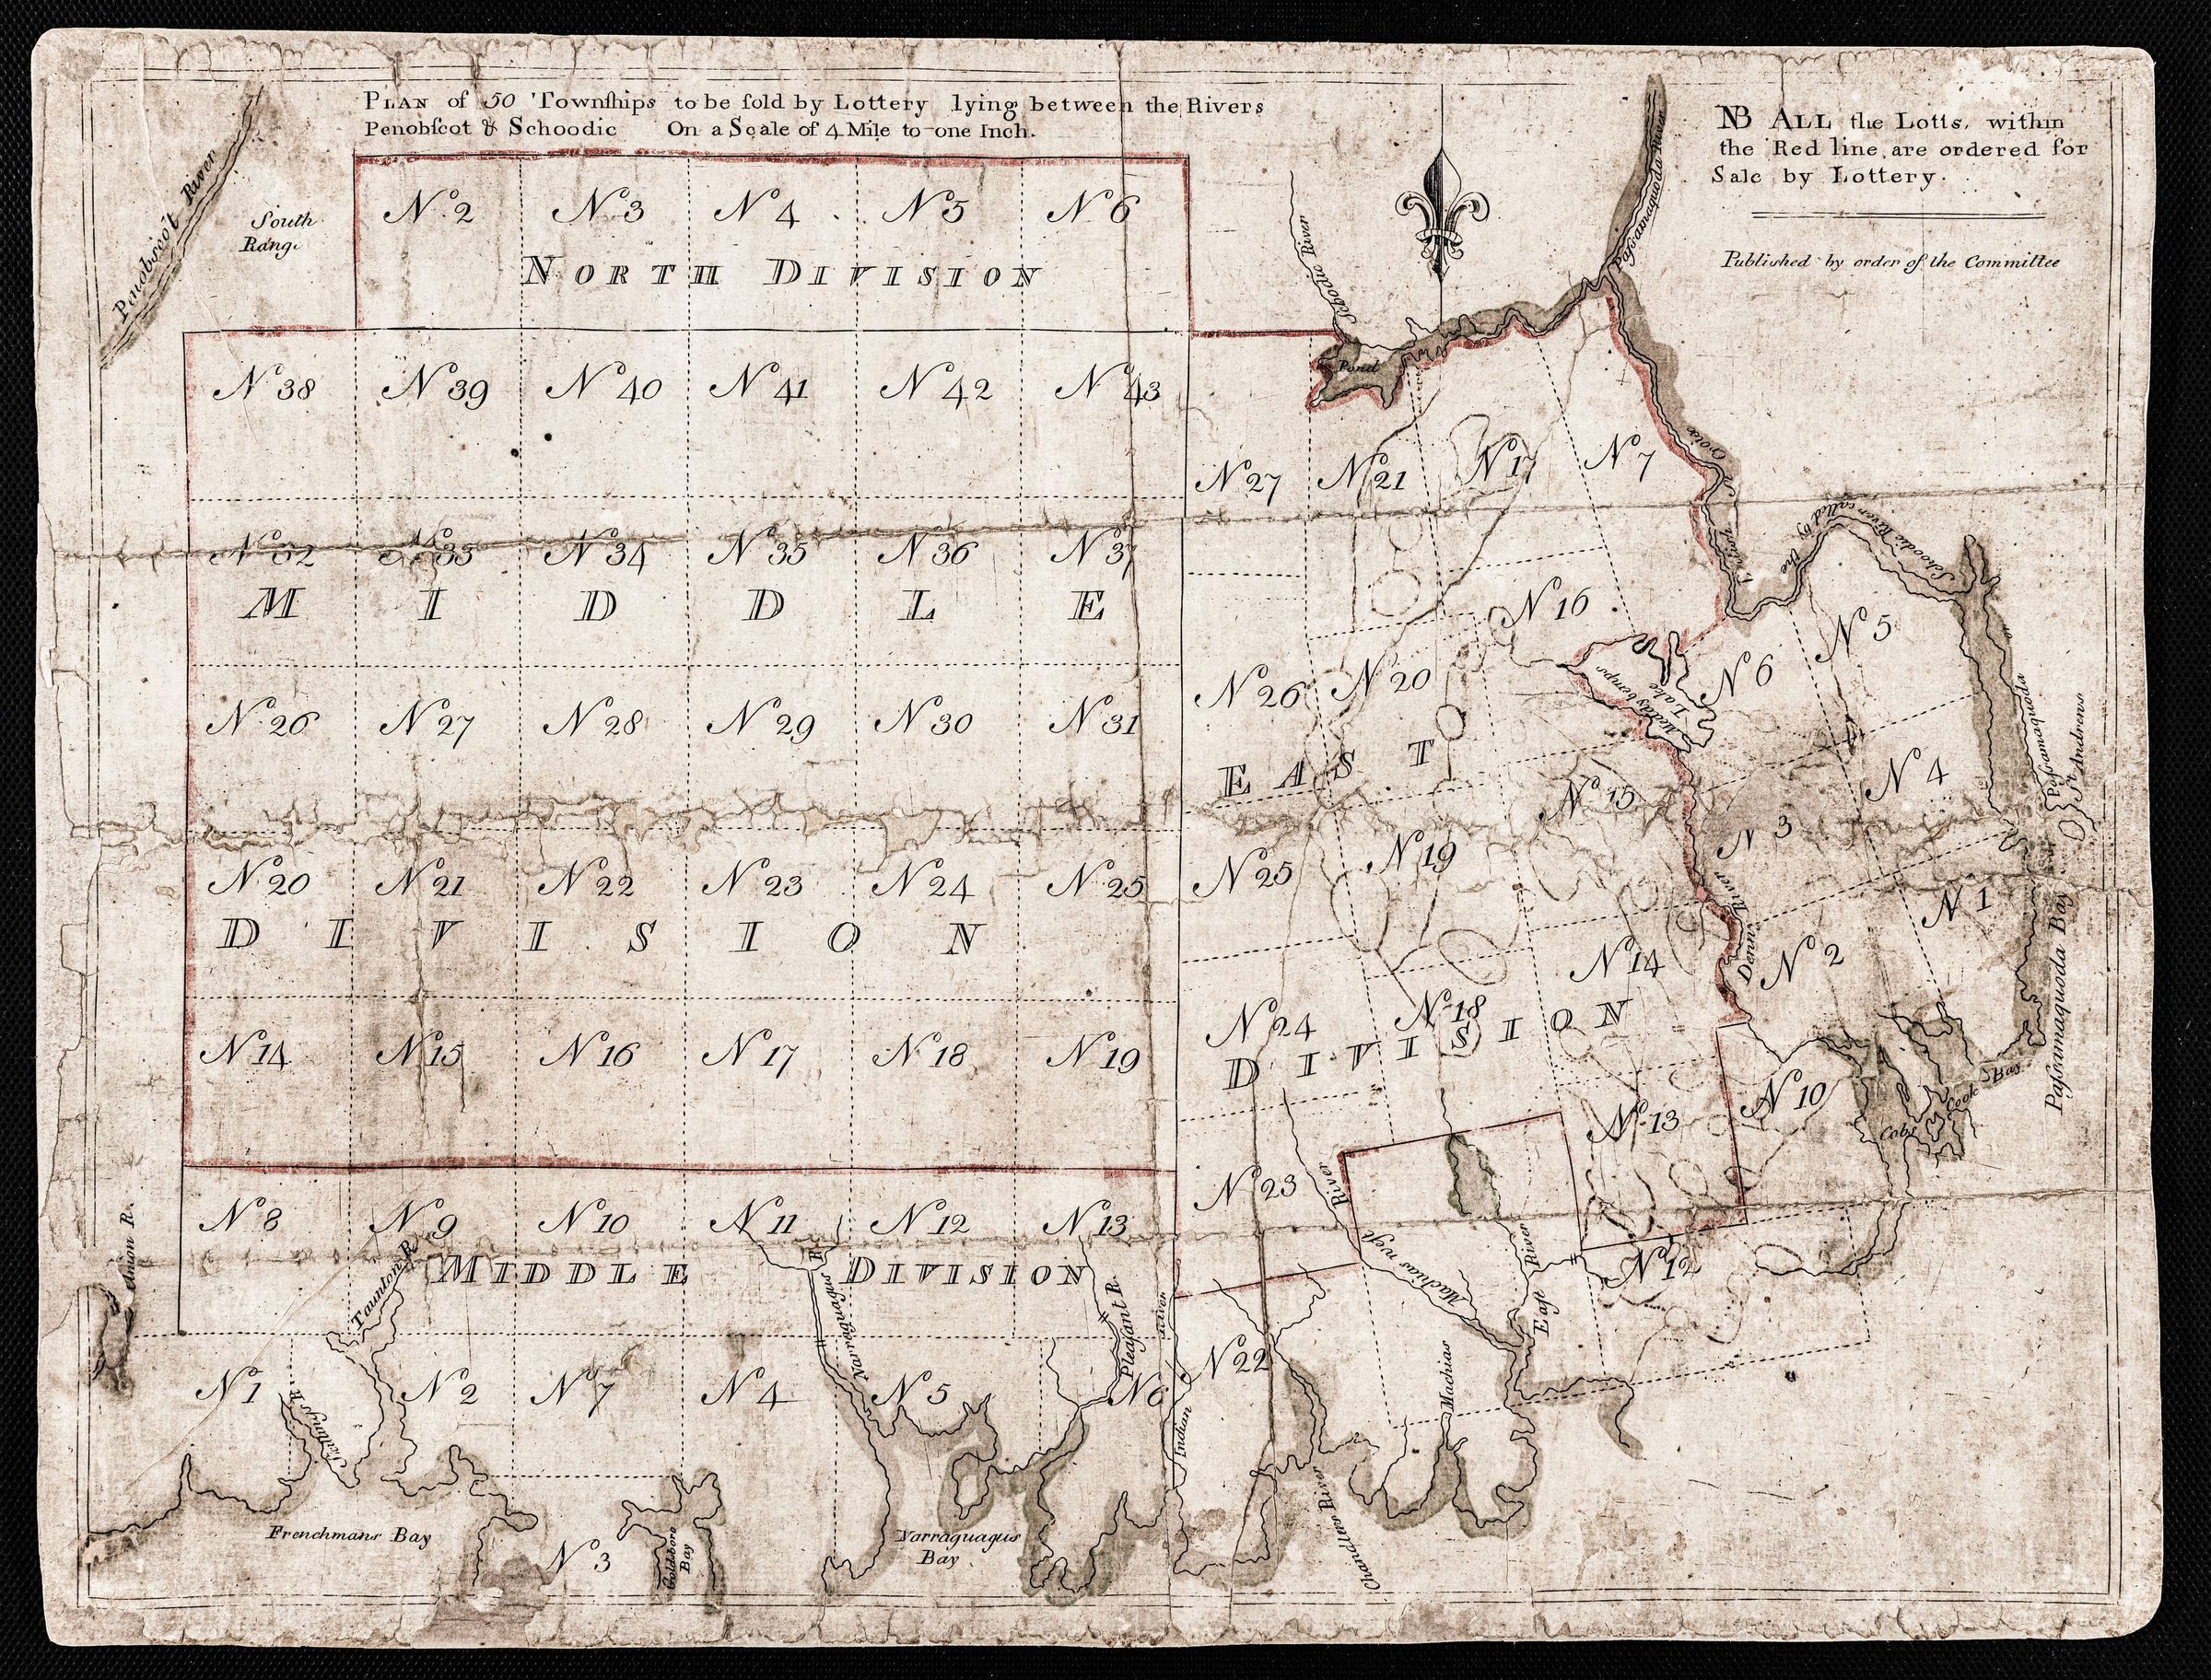 PLAN of 50 Townſhips to be ſold by Lottery lying between the Rivers
Penobſcot & Schoodic On a Scale of 4 Mile to one Inch.
NB ALL the Lotts, within
the Red line, are ordered for
Sale by Lottery.
Published by order of the Committee
Penobscot River
South
Range
Nº 2 Nº 3 Nº 4 Nº 5 Nº 6
NORTH DIVISION
Scodic River
Paſsamaquoda River
Pond
Nº 38 Nº 39 Nº 40 Nº 41 Nº 42 Nº 43
Nº 27 Nº 21 Nº 17 Nº 7
Croix
Schoodic River called by the
Nº 32 Nº 33 Nº 34 Nº 35 Nº 36 Nº 37
MIDDLE
Nº 16 Nº 5
Nº 26 Nº 27 Nº 28 Nº 29 Nº 30 Nº 31
Nº 26 Nº 20 Nº 6
Lake
Paſsamaquoda
or
St Andrews
EAST
Nº 15 Nº 4
Nº 3
Nº 20 Nº 21 Nº 22 Nº 23 Nº 24 Nº 25
Nº 25 Nº 19 Nº 1
DIVISION
Denns River
Nº 14 Nº 2
Paſsamaquoda Bay
Nº 14 Nº 15 Nº 16 Nº 17 Nº 18 Nº 19
Nº 24 Nº 18
DIVISION
Nº 13 Nº 10
Cobscook Bay
Nº 8 Nº 9 Nº 10 Nº 11 Nº 12 Nº 13
Nº 23
Machias West River
East River
Nº 12
Union R.
Taunton R.
MIDDLE DIVISION
Narraguagus R
Pleaſant R.
Indian River
Nº 1 Nº 2 Nº 7 Nº 4 Nº 5 Nº 6
Nº 22
Machias
Chandlers River
Frenchmans Bay
Nº 3
Goldsboro
Bay
Narraguagus
Bay